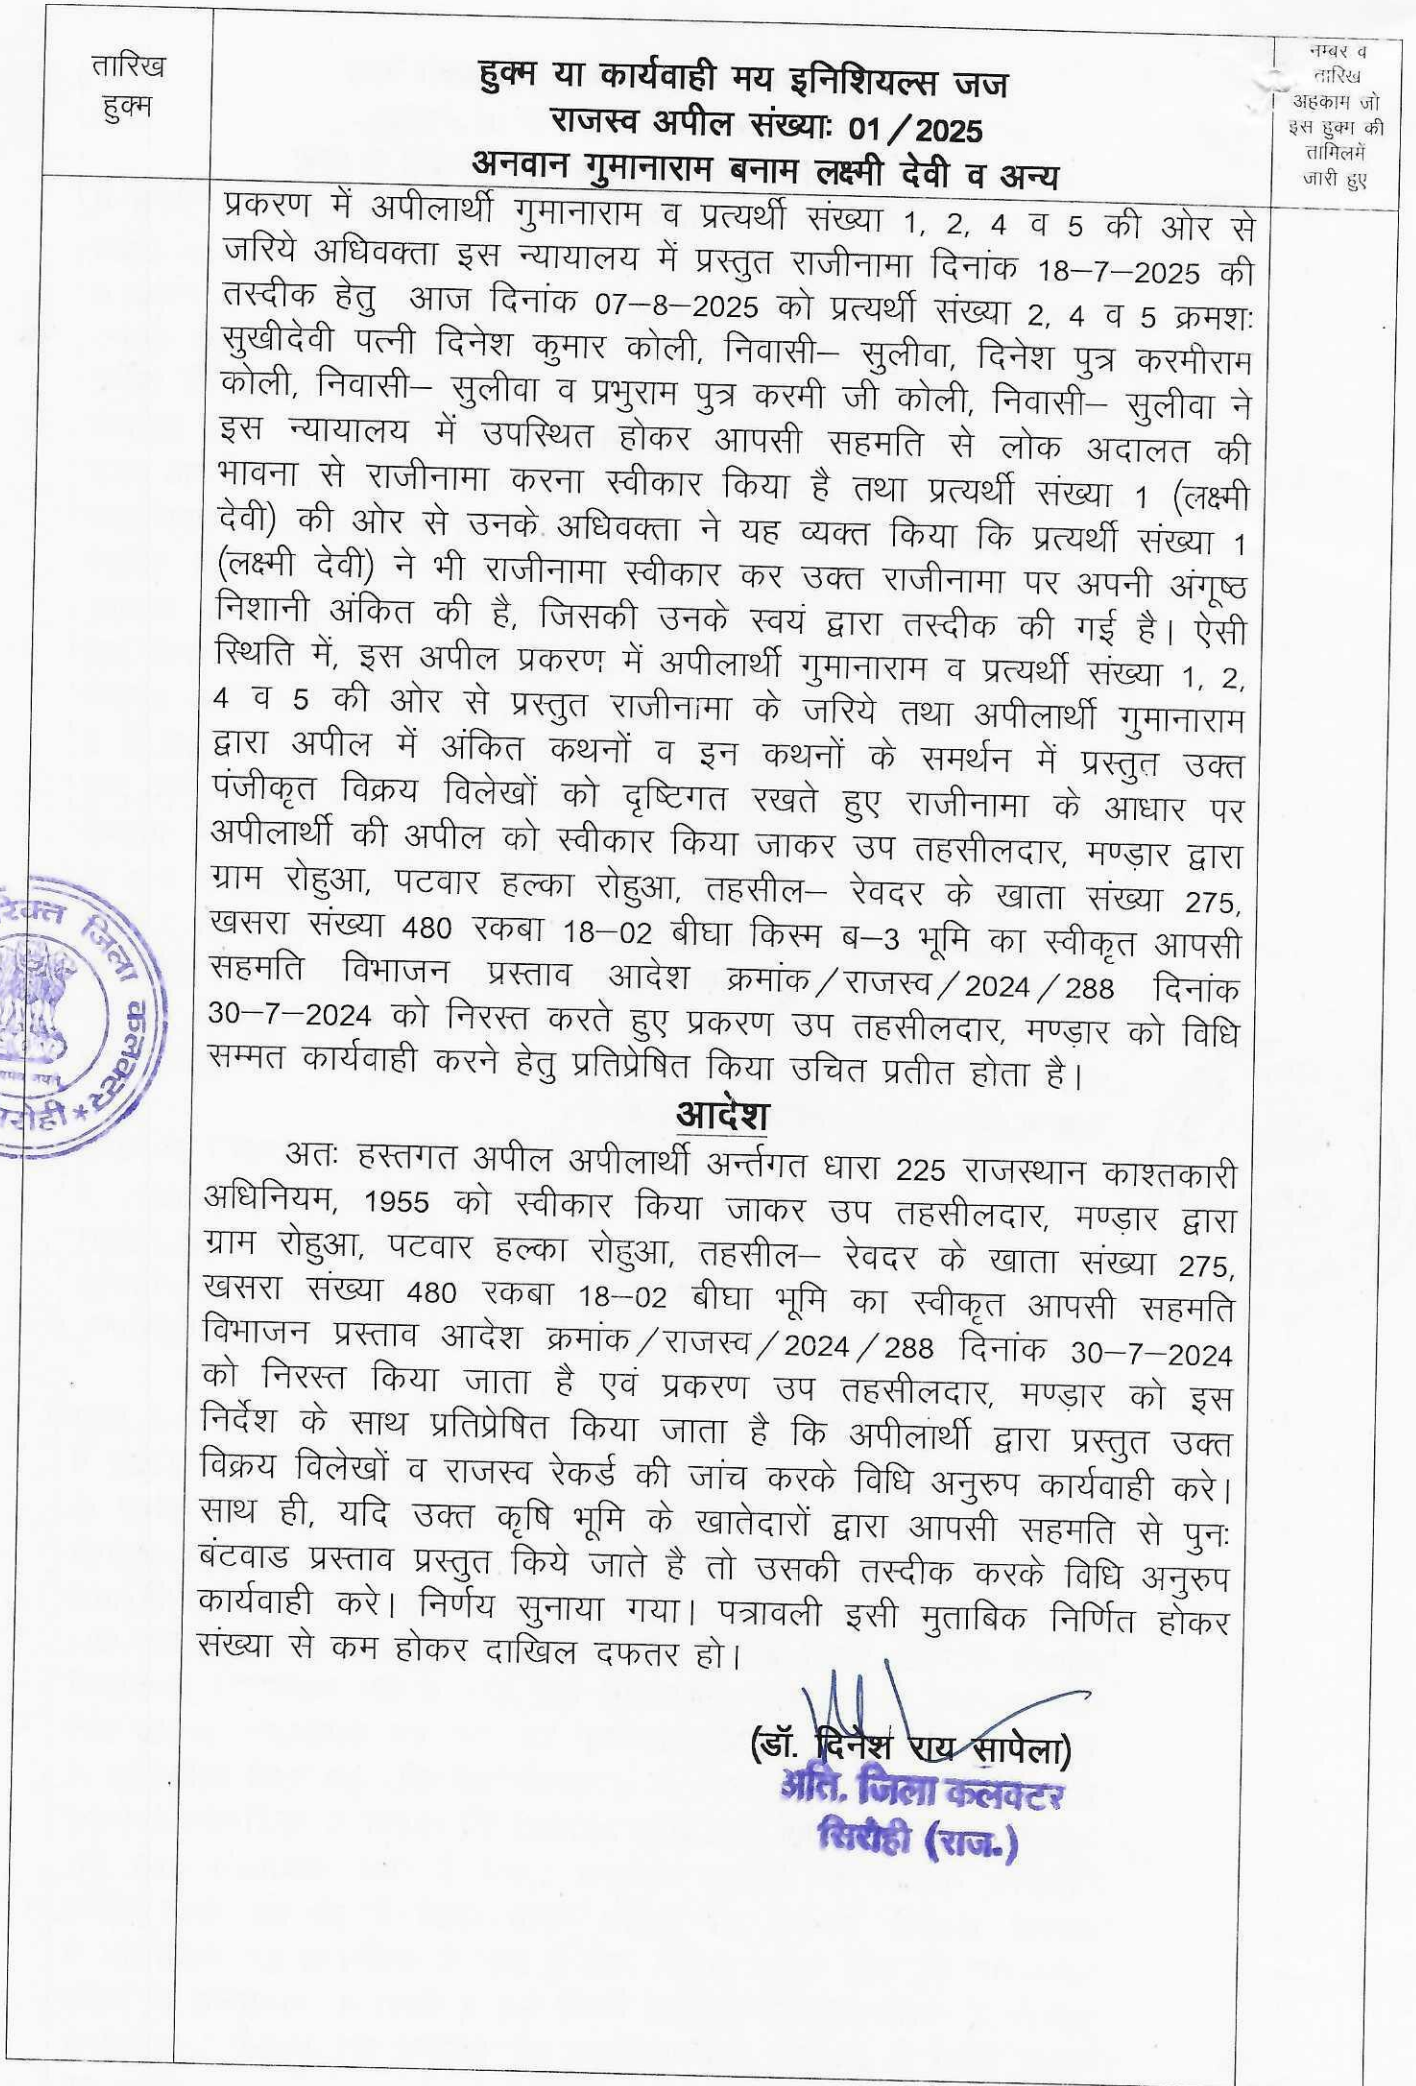 तारिख
हुक्म
हुक्म या कार्यवाही मय इनिशियल्स जज
राजस्व अपील संख्याः 01/2025
अनवान गुमानाराम बनाम लक्ष्मी देवी व अन्य
नम्बर व
तारिख
अहकाम जो
इस हुक्म की
तामिलमें
जारी हुए
प्रकरण में अपीलार्थी गुमानाराम व प्रत्यर्थी संख्या 1, 2, 4 व 5 की ओर से
जरिये अधिवक्ता इस न्यायालय में प्रस्तुत राजीनामा दिनांक 18–7–2025 की
तस्दीक हेतु आज दिनांक 07–8–2025 को प्रत्यर्थी संख्या 2, 4 व 5 क्रमशः
सुखीदेवी पत्नी दिनेश कुमार कोली, निवासी– सुलीवा, दिनेश पुत्र करमीराम
कोली, निवासी– सुलीवा व प्रभुराम पुत्र करमी जी कोली, निवासी– सुलीवा ने
इस न्यायालय में उपस्थित होकर आपसी सहमति से लोक अदालत की
भावना से राजीनामा करना स्वीकार किया है तथा प्रत्यर्थी संख्या 1 (लक्ष्मी
देवी) की ओर से उनके अधिवक्ता ने यह व्यक्त किया कि प्रत्यर्थी संख्या 1
(लक्ष्मी देवी) ने भी राजीनामा स्वीकार कर उक्त राजीनामा पर अपनी अंगूष्ठ
निशानी अंकित की है, जिसकी उनके स्वयं द्वारा तस्दीक की गई है। ऐसी
स्थिति में, इस अपील प्रकरण में अपीलार्थी गुमानाराम व प्रत्यर्थी संख्या 1, 2,
4 व 5 की ओर से प्रस्तुत राजीनामा के जरिये तथा अपीलार्थी गुमानाराम
द्वारा अपील में अंकित कथनों व इन कथनों के समर्थन में प्रस्तुत उक्त
पंजीकृत विक्रय विलेखों को दृष्टिगत रखते हुए राजीनामा के आधार पर
अपीलार्थी की अपील को स्वीकार किया जाकर उप तहसीलदार, मण्ड़ार द्वारा
ग्राम रोहुआ, पटवार हल्का रोहुआ, तहसील– रेवदर के खाता संख्या 275,
खसरा संख्या 480 रकबा 18–02 बीघा किस्म ब–3 भूमि का स्वीकृत आपसी
सहमति विभाजन प्रस्ताव आदेश क्रमांक/राजस्व/2024/288 दिनांक
30–7–2024 को निरस्त करते हुए प्रकरण उप तहसीलदार, मण्ड़ार को विधि
सम्मत कार्यवाही करने हेतु प्रतिप्रेषित किया उचित प्रतीत होता है।
आदेश
अतः हस्तगत अपील अपीलार्थी अर्न्तगत धारा 225 राजस्थान काश्तकारी
अधिनियम, 1955 को स्वीकार किया जाकर उप तहसीलदार, मण्ड़ार द्वारा
ग्राम रोहुआ, पटवार हल्का रोहुआ, तहसील– रेवदर के खाता संख्या 275,
खसरा संख्या 480 रकबा 18–02 बीघा भूमि का स्वीकृत आपसी सहमति
विभाजन प्रस्ताव आदेश क्रमांक/राजस्व/2024/288 दिनांक 30–7–2024
को निरस्त किया जाता है एवं प्रकरण उप तहसीलदार, मण्ड़ार को इस
निर्देश के साथ प्रतिप्रेषित किया जाता है कि अपीलार्थी द्वारा प्रस्तुत उक्त
विक्रय विलेखों व राजस्व रेकर्ड की जांच करके विधि अनुरुप कार्यवाही करे।
साथ ही, यदि उक्त कृषि भूमि के खातेदारों द्वारा आपसी सहमति से पुनः
बंटवाड प्रस्ताव प्रस्तुत किये जाते है तो उसकी तस्दीक करके विधि अनुरुप
कार्यवाही करे। निर्णय सुनाया गया। पत्रावली इसी मुताबिक निर्णित होकर
संख्या से कम होकर दाखिल दफतर हो।
(डॉ. दिनेश राय सापेला)
अति. जिला कलक्टर
सिरोही (राज.)
जिला कलक्टर